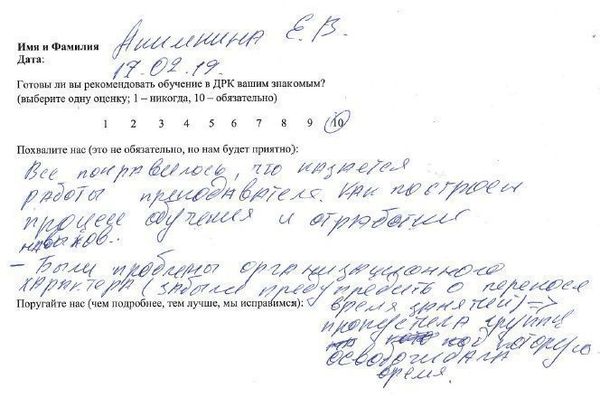 Имя и Фамилия Акимнина Е.В.
Дата: 17.02.19.
Готовы ли вы рекомендовать обучение в ДРК вашим знакомым?
(выберите одну оценку; 1 – никогда, 10 – обязательно)
1 2 3 4 5 6 7 8 9 10
Похвалите нас (это не обязательно, но нам будет приятно):
Все понравилось, что касается
работы преподавателя. Как построен
процесс обучения и отработки
навыков..
– Были проблемы организационного
характера (забыли предупредить о переносе
Поругайте нас (чем подробнее, тем лучше, мы исправимся): время занятий) =>
пропустила группу
под которую
освобождала
время.